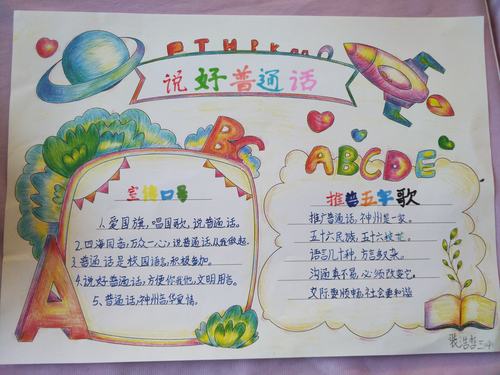 说好普通话
B
ABCDE
A
宣传口号
1、爱国旗,唱国歌,说普通话。
2、四海同音,万众一心,说普通话从我做起。
3、普通话是校园语言,积极参加。
4、说好普通话,方便你我他,文明用
5、普通话,神州音华夏情。
推普五字歌
推广普通话,神州是一家。
五十六民族,五十六枝花。
语言几十种,方言
沟通真不易,必须改变它。
交际要顺畅,社会要和谐